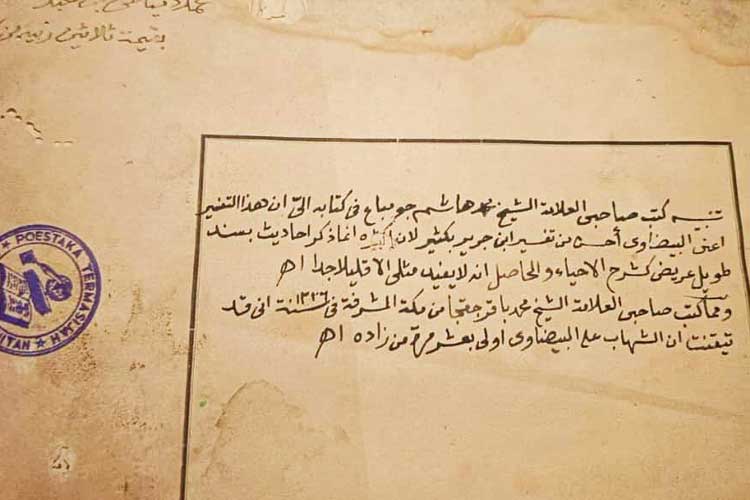 بقيمة ثلاثين
تنبيه كتب صاحبي العلامة الشيخ محمد هاشم جومباغ في كتابه الي ان هذا التفسير
اعني البيضاوى أحسن من تفسير ابن جرير بكثير لان اكثره انما ذكر احاديث بسند
طويل عريض كشرح الاحياء والحاصل انه لايفيد مثلي الا قليلا جدا اه
ومما كتب صاحبي العلامة الشيخ محمد باقر جقجا من مكة المشرفة في سنة ١٣١٦ اني قد
تيقنت ان الشهاب على البيضاوى اولى بعشر مرة من زاده اه
POESTAKA TERMAS